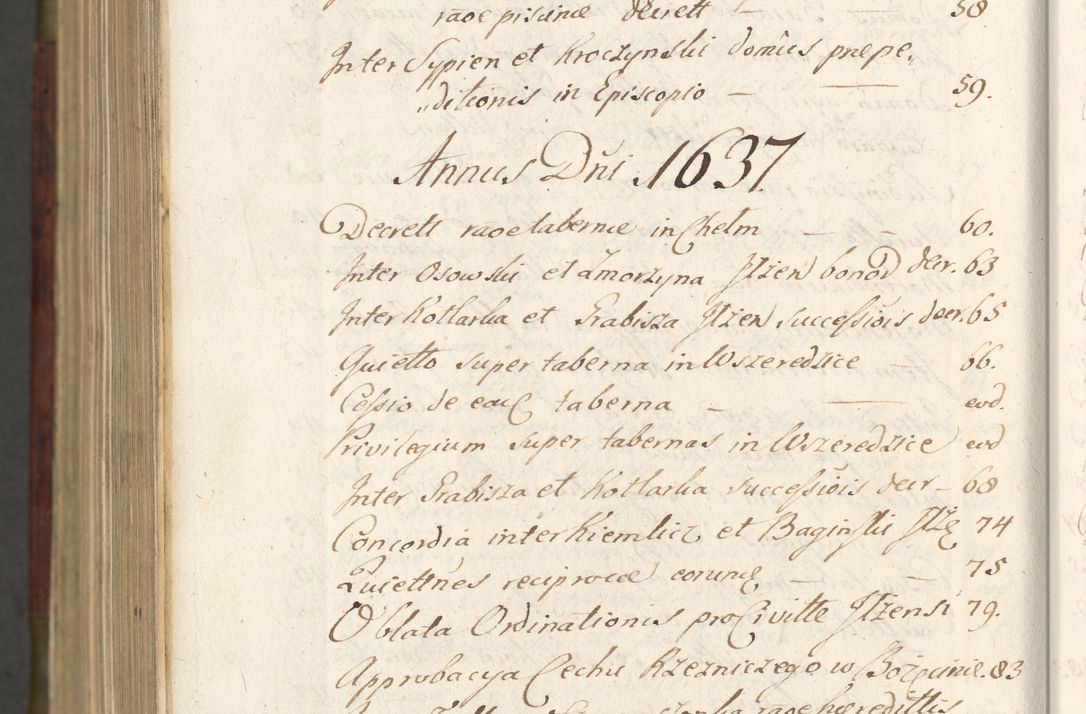 rãoe piscinæ decrett — — 58
Inter Sypien et Kroczynski domûs præpe„
„ditionis in Episcopio — — 59.
Annus Dñi 1637.
Decrett rãoe tabernæ in Chelm — — 60.
Inter Osowski et Zmorzyna Jlzeñ bonoȓ decr. 63
Inter Kotlarka et Grabisza Jlzeñ successiõis decr. 65
Quietto super taberna in Wszeredzice — 66.
Cessio de eadę taberna — — eod.
Privilegium super tabernas in Wszeredzice eod
Inter Grabisza et Kotlarka successiõis decr — 68
Concordia inter Kiemlicz et Baginski Jlżę 74
Quiettñes reciprocæ eorunđ — — 75
Oblata Ordinationis pro Civitte Jlżensi 79.
Approbacya Cechu Rzezniczego w Bożęcinie. 83
rãoe hæredittis